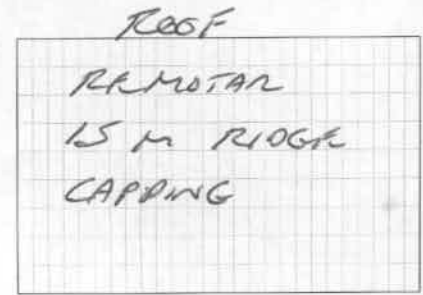 ROOF
REMOTAR
15 M RIDGE
CAPPING